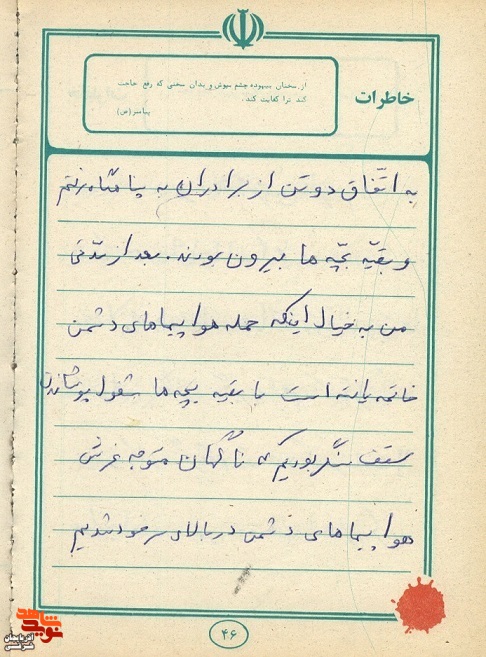 خاطرات
از سخنان بیهوده چشم بپوش و بدان سخنی که رفع حاجت
کند ترا کفایت کند.
پیامبر (ص)
به اتّفاق دو تن از برادران به پناهگاه رفتم
و بقیّه بچّه ها بیرون بودند. بعد از مدّتی
من به خیال اینکه حمله هواپیماهای دشمن
خاتمه یافته است با بقیه بچه ها مشغول پوشاندن
سقف سنگر بودیم که ناگهان متوجه غرش
هواپیماهای دشمن در بالای سر خود شدیم
۴۶
نوید شاهد
آذربایجان
شرقی